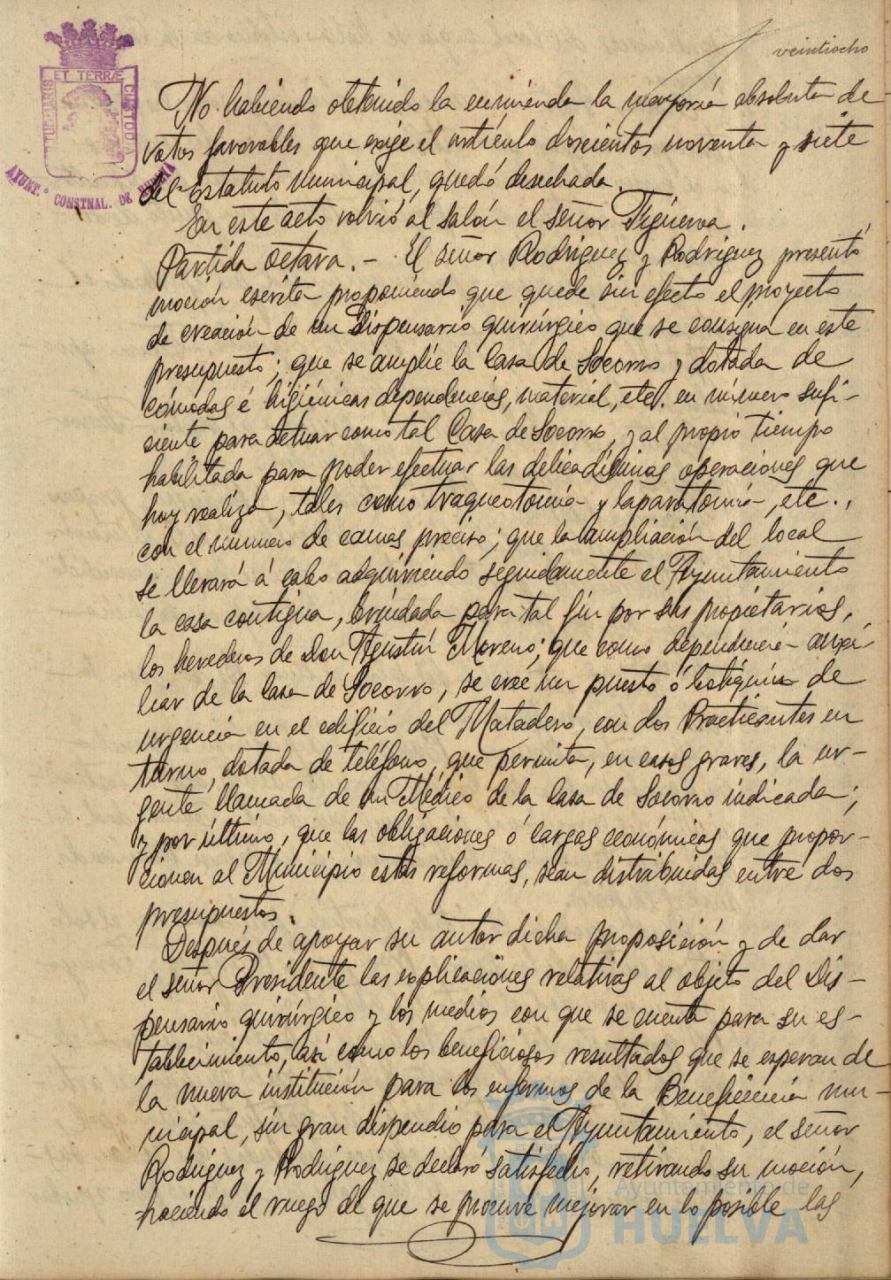 veintiocho
PORTUS MARIS ET TERRÆ CUSTODIA
AYUNT.º CONSTNAL. DE HUELVA
No habiendo obtenido la enmienda la mayoría absoluta de
votos favorables que exige el artículo doscientos noventa y siete
del Estatuto Municipal, quedó desechada.
En este acto volvió al salón el señor Figueroa.
Partida octava.- El señor Rodriguez y Rodriguez presentó
moción escrita proponiendo que quede sin efecto el proyecto
de creación de un Dispensario quirúrgico que se consigna en este
presupuesto; que se amplíe la Casa de Socorro y dotada de
cómodas é higiénicas dependencias, material, etc. en número sufi-
ciente para actuar como tal Casa de Socorro, y al propio tiempo
habilitada para poder efectuar las delicadísimas operaciones que
hoy realiza, tales como traqueotomía y laparatomía, etc.,
con el número de camas preciso; que la ampliación del local
se llevará á cabo adquiriendo seguidamente el Ayuntamiento
la casa contigua, brindada para tal fin por sus propietarios,
los herederos de Don Agustín Moreno; que como dependencia auxi-
liar de la Casa de Socorro, se cree un puesto ó botiquín de
urgencia en el edificio del Matadero, con dos Practicantes en
turno, dotada de teléfono, que permita, en casos graves, la ur-
gente llamada de un Médico de la Casa de Socorro indicada;
y por último, que las obligaciones ó cargas económicas que propor-
cionen al Municipio estas reformas, sean distribuidas entre dos
presupuestos.
Después de apoyar su autor dicha proposición y de dar
el señor Presidente las explicaciones relativas al objeto del Dis-
pensario quirúrgico y los medios con que se cuenta para su es-
tablecimiento, así como los beneficiosos resultados que se esperan de
la nueva institución para los enfermos de la Beneficencia mu-
nicipal, sin gran dispendio para el Ayuntamiento, el señor
Rodriguez y Rodriguez se declaró satisfecho, retirando su moción,
haciendo el ruego de que se procure mejorar en lo posible las
Ayuntamiento de
HUELVA